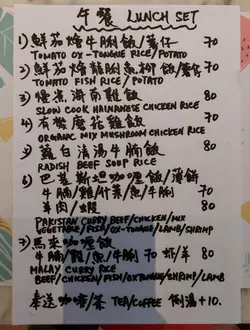 午餐 LUNCH SET
1) 鮮茄燴牛脷飯/薯仔 70
TOMATO OX-TONGUE RICE/POTATO
2) 鮮茄燴龍脷魚柳飯/薯仔 70
TOMATO FISH RICE / POTATO
3) 慢煮海南雞飯 80
SLOW COOK HAINANESE CHICKEN RICE
4) 有機蘑菇雞飯 70
ORGANIC MIX MUSHROOM CHICKEN RICE
5) 蘿白清湯牛腩飯 80
RADISH BEEF SOUP RICE
6) 巴基斯坦咖喱飯/薄餅
牛腩/雞/什菜/魚/牛脷 70
羊肉/蝦 80
PAKISTAN CURRY BEEF/CHICKEN/MIX
VEGETABLE/FISH/OX-TONGUE/LAMB/SHRIMP
7) 馬來咖喱飯
牛腩/雞/魚/牛脷 70 蝦/羊 80
MALAY CURRY RICE
BEEF/CHICKEN/FISH/OXTONGUE/SHRIMP/LAMB
奉送咖啡/茶 TEA/COFFEE 例湯+10.